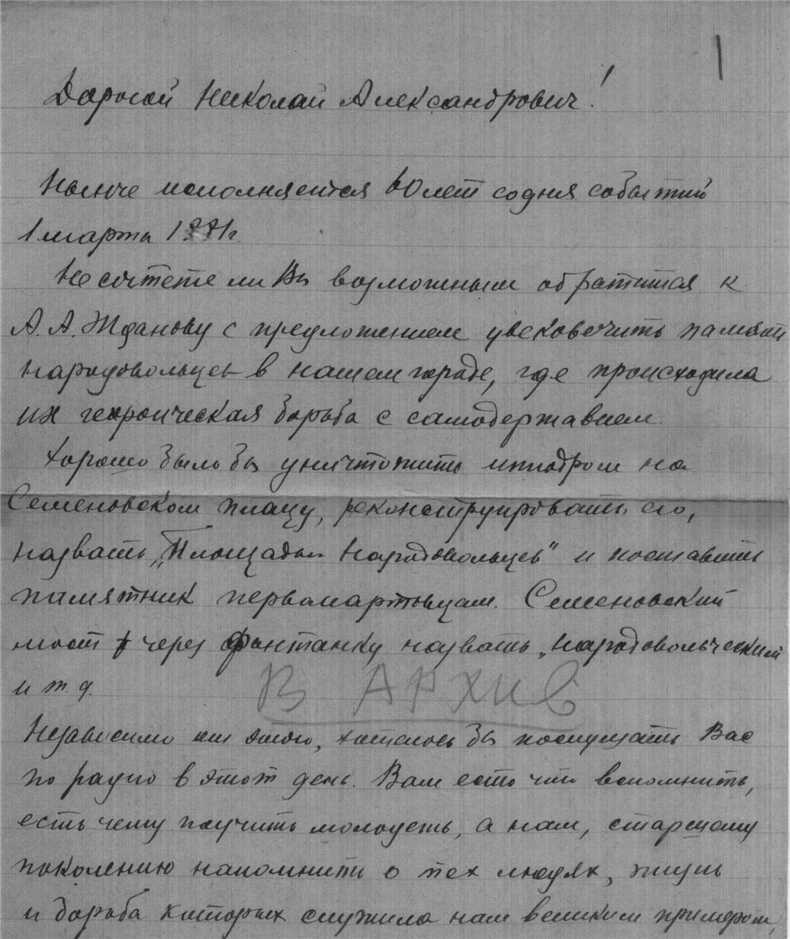 Дорогой Николай Александрович!
Нынче исполняется 60 лет со дня событий
1 марта 1881г.
Не сочтете ли Вы возможным обратится к
А. А. Жданову с предложением увековечить память
народовольцев в нашем городе, где происходила
их героическая борьба с самодержавием.
Хорошо было бы уничтожить ипподром на
Семеновском плацу, реконструировать его,
назвать „Площадью Народовольцев" и поставить
памятник первомартовцам. Семеновский
мост через Фонтанку назвать „Народовольческим
и т. д.
В АРХИВ
Независимо от этого, хотелось бы послушать Вас
по радио в этот день. Вам есть что вспомнить,
есть чему научить молодежь, а нам, старшему
поколению напомнить о тех людях, жизнь
и борьба которых служила нам великим примером,